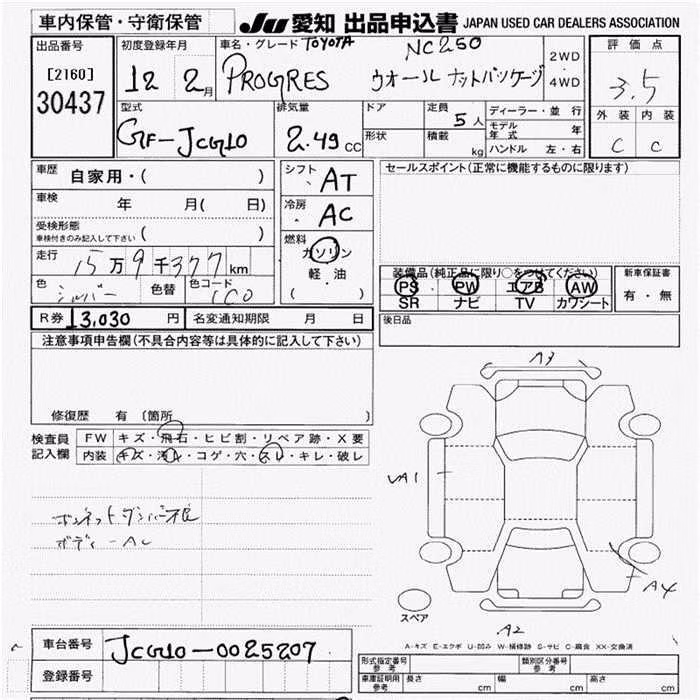 車内保管・守衛保管
JU 愛知 出品申込書 JAPAN USED CAR DEALERS ASSOCIATION
出品番号
[2160]
30437
初度登録年月
12 2月
車名・グレード TOYOTA NC250
PROGRES ウオールナットパッケージ
2WD
4WD
評価点
3.5
外装 内装
C C
型式
GF-JCG10
排気量
2.49 CC
ドア
形状
定員
5人
積載
kg
ディーラー・並行
モデル年式 年
ハンドル 左・右
車歴 自家用・( )
車検 年 月( 日)
受検形態
車検付きのみ記入して下さい ( )
走行 15万9千377km
色 シルバー 色替 色コード 1C0
シフト AT
冷房 AC
燃料
ガソリン
軽・油
( )
セールスポイント(正常に機能するものに限ります)
装備品(純正品に限り○をつけてください)
PS PW エアB AW
SR ナビ TV カワシート
新車保証書
有・無
R券 13,030 円 名変通知期限 月 日
後日品
注意事項申告欄(不具合内容等は具体的に記入して下さい)
修復歴 有 〔箇所 〕
検査員記入欄
FW キズ・飛石・ヒビ割・リペア跡・X要
内装 キズ・汚れ・コゲ・穴・スレ・キレ・破レ
ボディーAC
A3
UA1
A4
A2
スペア
A-キズ E-エクボ U-凹み W-補修跡 S-サビ C-腐食 XX-交換済
車台番号 JCG10-0025207
登録番号
型式指定番号 参考
類別区分番号 参考
車庫証明用 参考
長さ cm 幅 cm 高さ cm